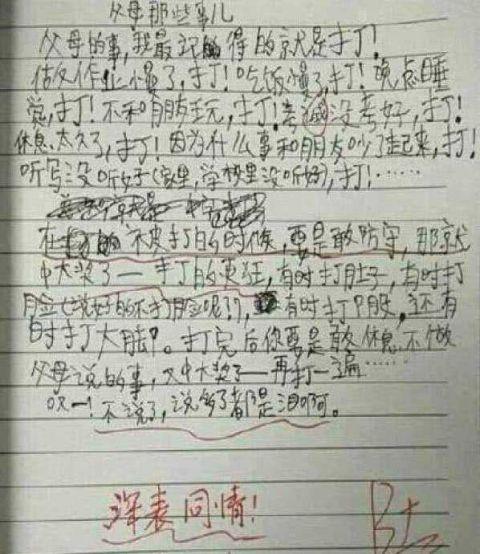 父母那些事儿
父母的事,我最记的得的就是打!
做作业慢了,打!吃饭慢了,打!晚点睡
觉,打!不和朋友玩,打!考试没考好,打!
休息太久了,打!因为什么事和朋友吵了起来,打!
听写没听好(家里,学校里没听好),打!……
在被打的时候,要是敢防守,那就
中大奖了——打的更狂,有时打肚子,有时打
脸(说好的不打脸呢!?),有时打P股,还有
时打大脚。打完后你要是敢休息不做
父母说的事,又中大奖了——再打一遍……
哎——!不说了,说多了都是泪啊。
深表同情!
B+